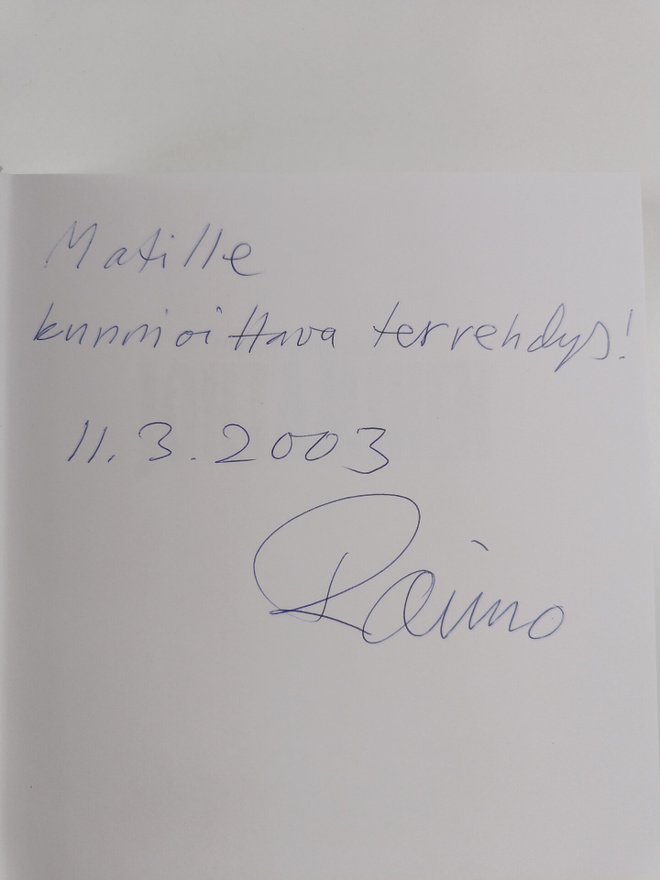 Matille
kunnioittava tervehdys!
11.3.2003
Raimo